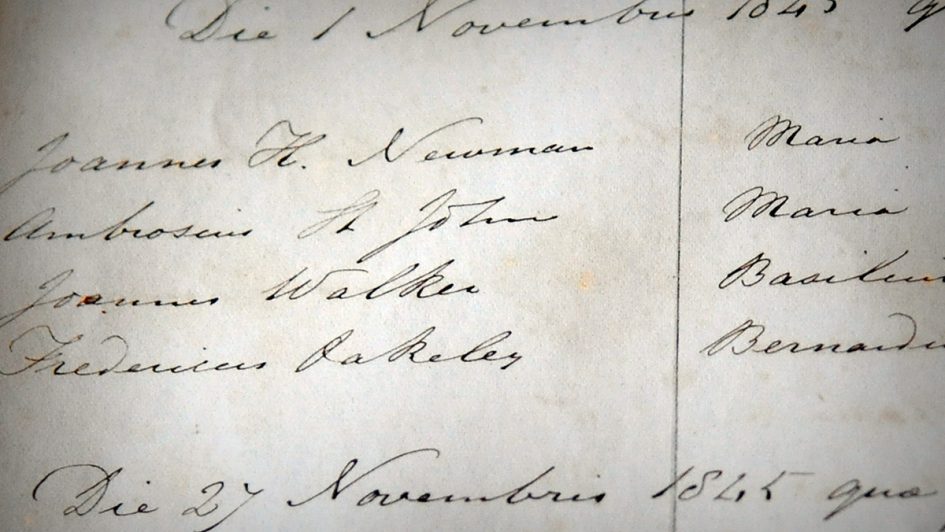 Die 1 Novembris 1845 q
Joannes H. Newman Maria
Ambrosius St John Maria
Joannes Walker Basiliu
Fredericus Oakeley Bernardu
Die 27 Novembris 1845 quæ